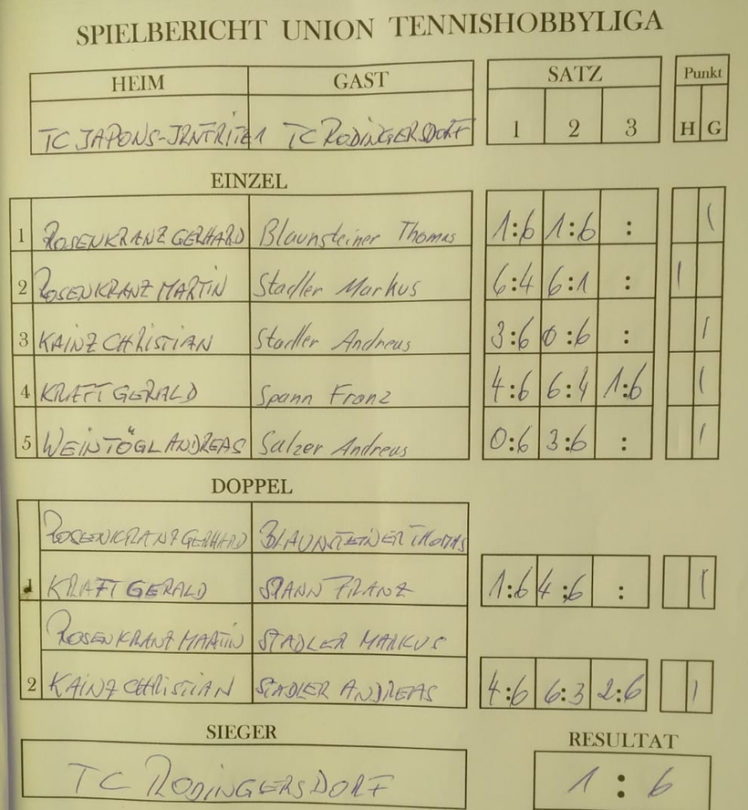 SPIELBERICHT UNION TENNISHOBBYLIGA
HEIM GAST SATZ Punkt
TC JAPONS-IRNFRITZ 1 TC RODINGERSDORF 1 2 3 H G
EINZEL
1 ROSENKRANZ GERHARD Blaunsteiner Thomas 1:6 1:6 : 1
2 ROSENKRANZ MARTIN Stadler Markus 6:4 6:1 : 1
3 KAINZ CHRISTIAN Stadler Andreas 3:6 0:6 : 1
4 KRAFT GERALD Spann Franz 4:6 6:4 1:6 1
5 WEINTÖGL ANDREAS Salzer Andreas 0:6 3:6 : 1
DOPPEL
ROSENKRANZ GERHARD BLAUNSTEINER THOMAS
1 KRAFT GERALD SPANN FRANZ 1:6 4:6 : 1
ROSENKRANZ MARTIN STADLER MARKUS
2 KAINZ CHRISTIAN STADLER ANDREAS 4:6 6:3 2:6 1
SIEGER RESULTAT
TC RODINGERSDORF 1 : 6